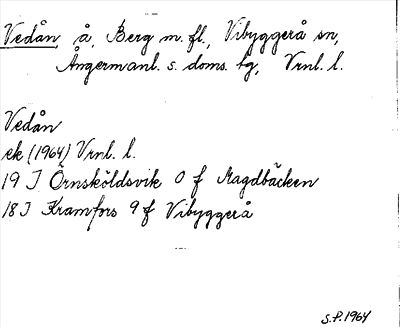 Vedån, å, Berg m. fl., Vibyggerå sn,
Ångermanl. s. doms. tg, Vrnl. l.
Vedån
ek (1964) Vrnl. l.
19 I Örnsköldsvik 0 f Magdbäcken
18 I Kramfors 9 f Vibyggerå
S.P. 1964